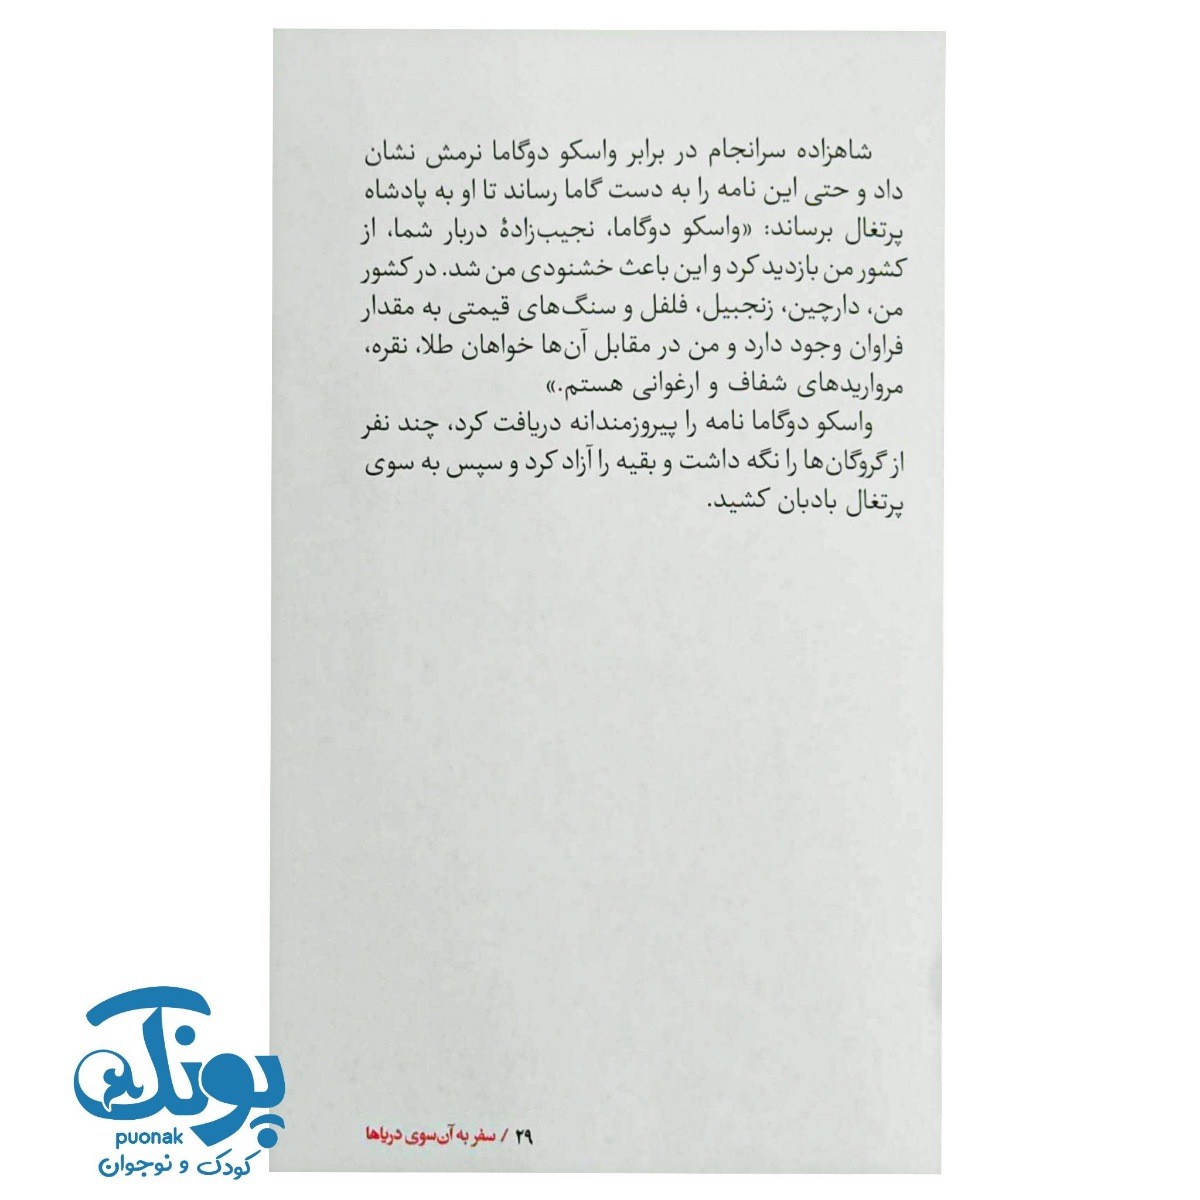 شاهزاده سرانجام در برابر واسکو دوگاما نرمش نشان
داد و حتی این نامه را به دست گاما رساند تا او به پادشاه
پرتغال برساند: «واسکو دوگاما، نجیب‌زادهٔ دربار شما، از
کشور من بازدید کرد و این باعث خشنودی من شد. در کشور
من، دارچین، زنجبیل، فلفل و سنگ‌های قیمتی به مقدار
فراوان وجود دارد و من در مقابل آن‌ها خواهان طلا، نقره،
مرواریدهای شفاف و ارغوانی هستم.»
واسکو دوگاما نامه را پیروزمندانه دریافت کرد، چند نفر
از گروگان‌ها را نگه داشت و بقیه را آزاد کرد و سپس به سوی
پرتغال بادبان کشید.
۲۹ / سفر به آن‌سوی دریاها
پونک
puonak
کودک و نوجوان